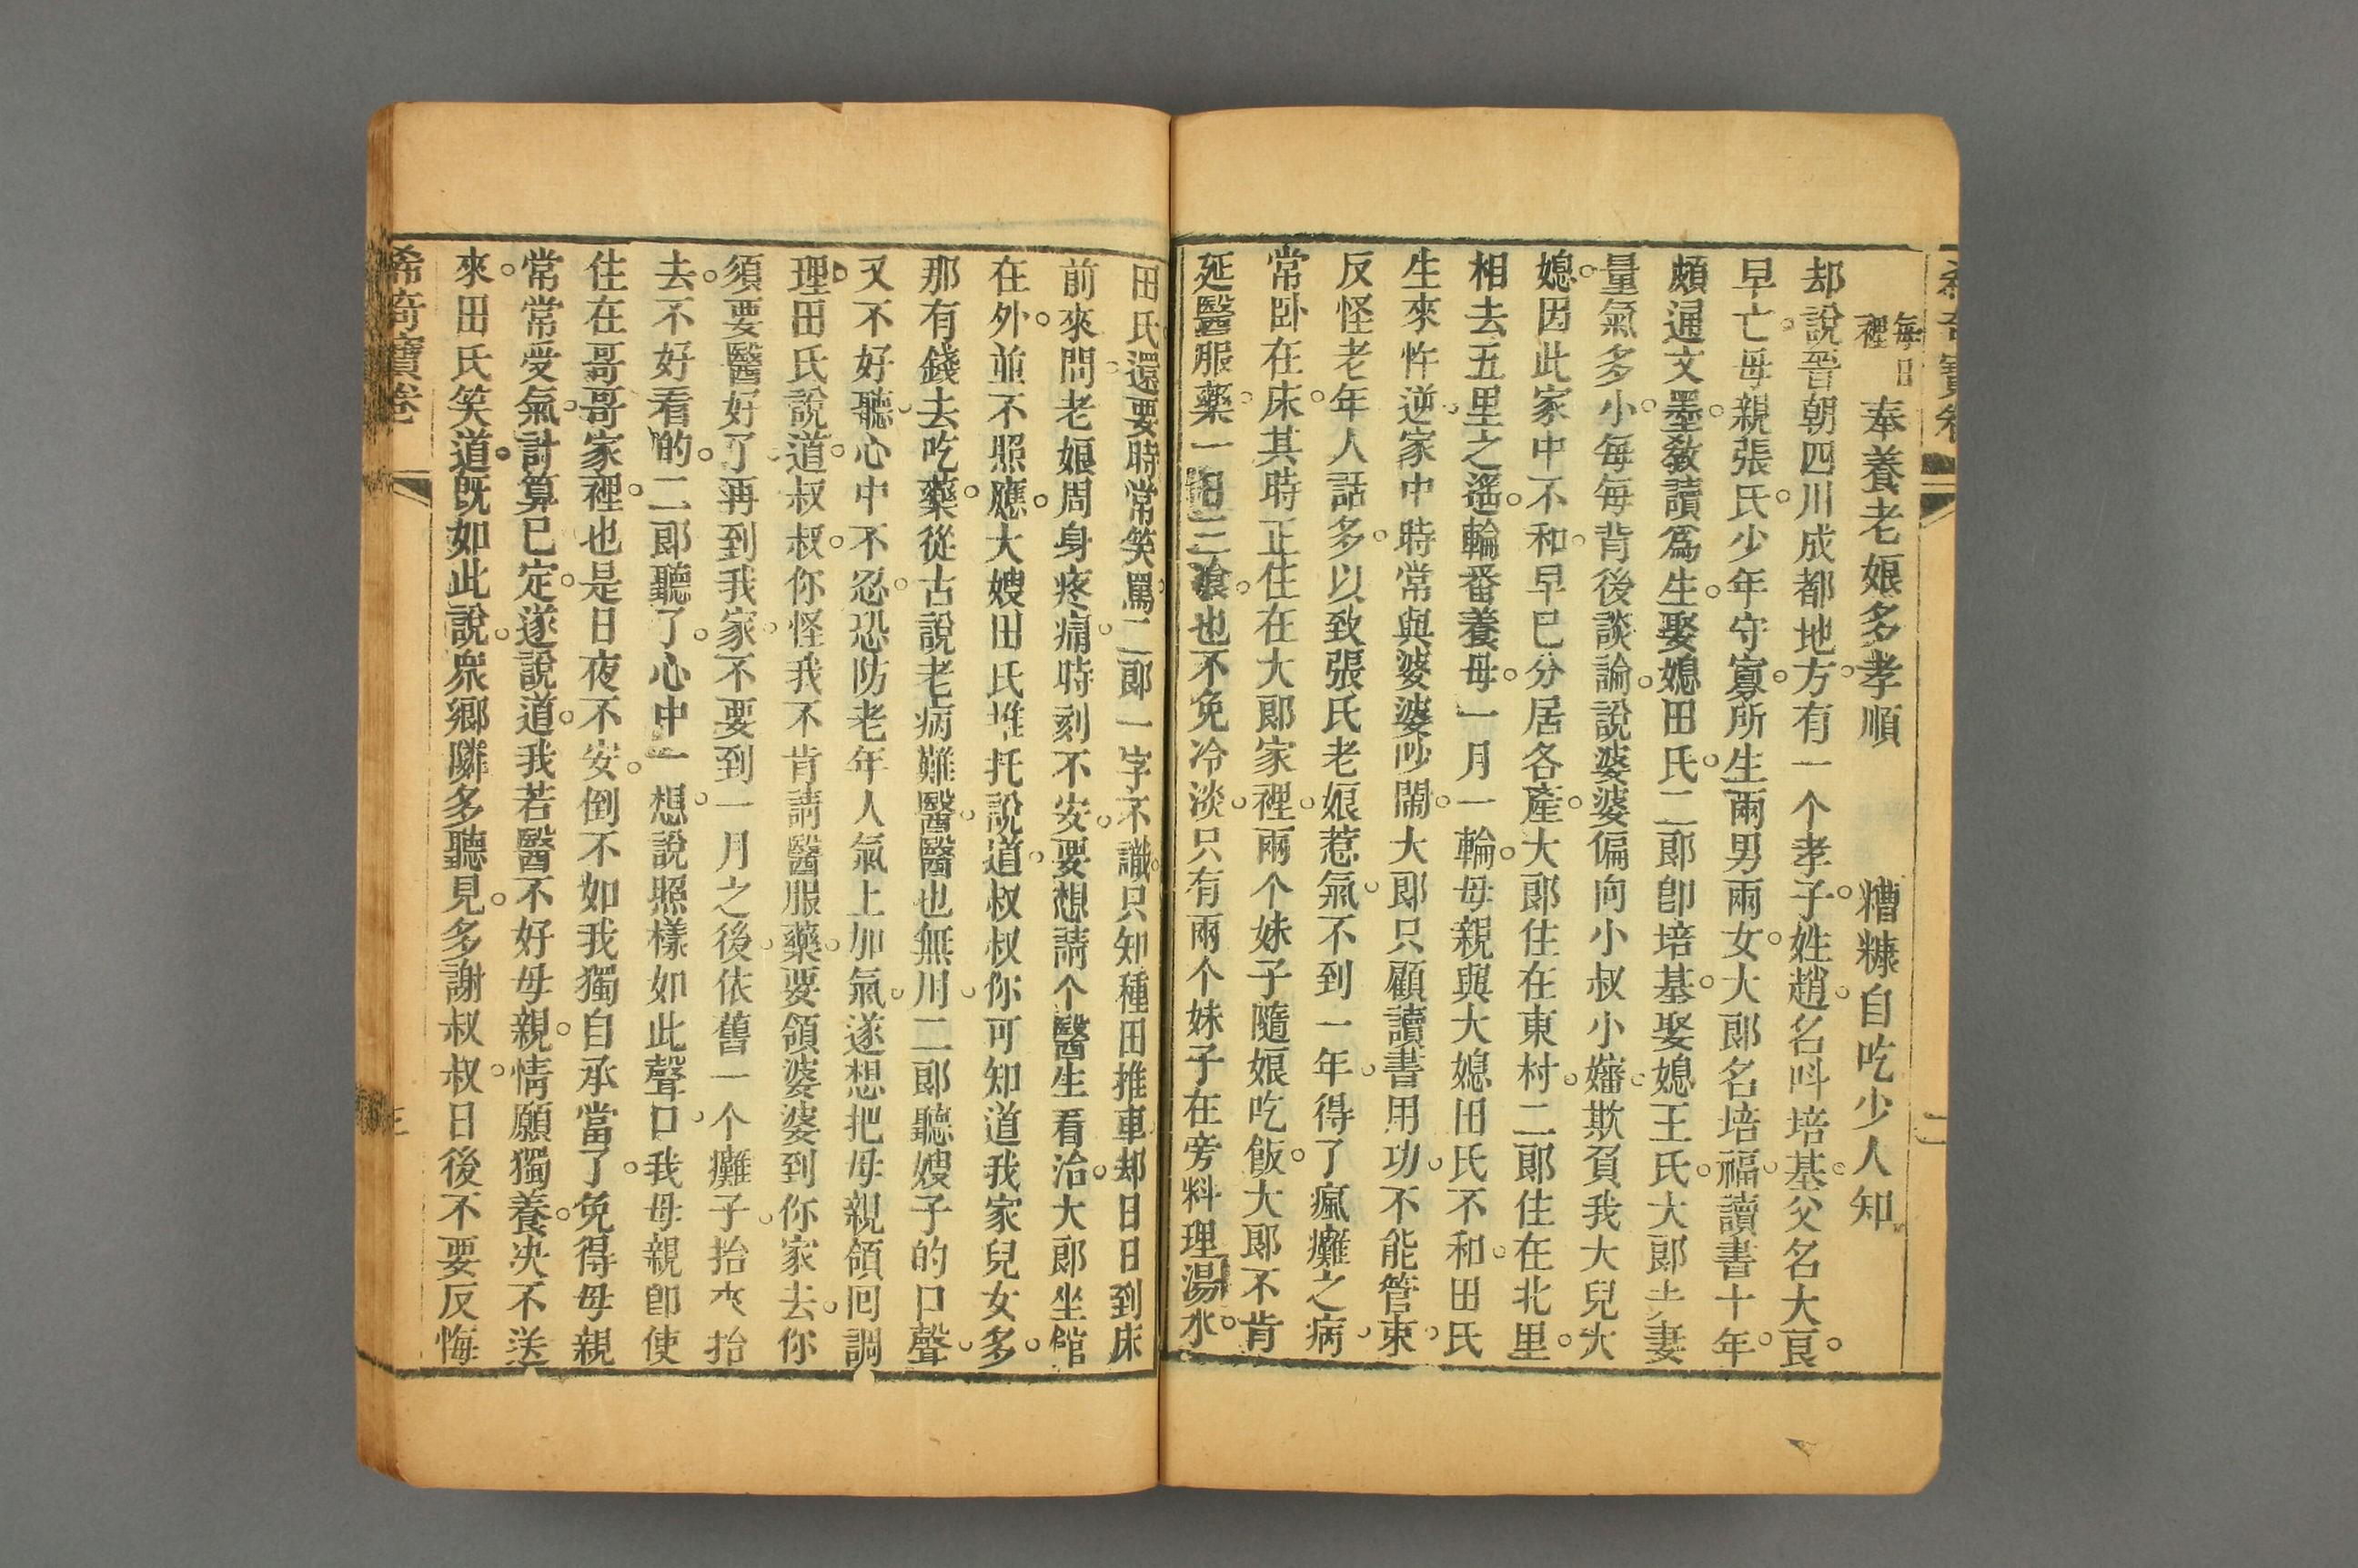 每日裡 奉養老娘多孝順 糟糠自吃少人知
却說晉朝四川成都地方有一个孝子姓趙名呌培基父名大良
早亡母親張氏少年守寡所生兩男兩女大郎名培福讀書十年
頗通文墨敎讀爲生娶媳田氏二郎卽培基娶媳王氏大郎夫妻
量氣多小每每背後談論說婆婆偏向小叔小嬸欺負我大兒大
媳因此家中不和早已分居各產大郎住在東村二郎住在北里
相去五里之遙輪番養母一月一輪母親與大媳田氏不和田氏
生來忤逆家中時常與婆婆吵鬧大郎只顧讀書用功不能管束
反怪老年人話多以致張氏老娘惹氣不到一年得了瘋癱之病
常卧在床其時正住在大郎家裡兩个妹子隨娘吃飯大郎不肯
延醫服藥一日三飡也不免冷淡只有兩个妹子在旁料理湯水
田氏還要時常笑罵二郎一字不識只知種田推車却日日到床
前來問老娘周身疼痛時刻不安要想請个醫生看治大郎坐舘
在外並不照應大嫂田氏推托說道叔叔你可知道我家兒女多
那有錢去吃藥從古說老病難醫醫也無用二郎聽嫂子的口聲
又不好聽心中不忍恐防老年人氣上加氣遂想把母親領囘調
理田氏說道叔叔你怪我不肯請醫服藥要領婆婆到你家去你
須要醫好了再到我家不要到一月之後依舊一个癱子抬來抬
去不好看的二郎聽了心中一想說照樣如此聲口我母親卽使
住在哥哥家裡也是日夜不安倒不如我獨自承當了免得母親
常常受氣計算已定遂說道我若醫不好母親情願獨養决不送
來田氏笑道旣如此說衆鄉隣多聽見多謝叔叔日後不要反悔
希奇寶卷 三